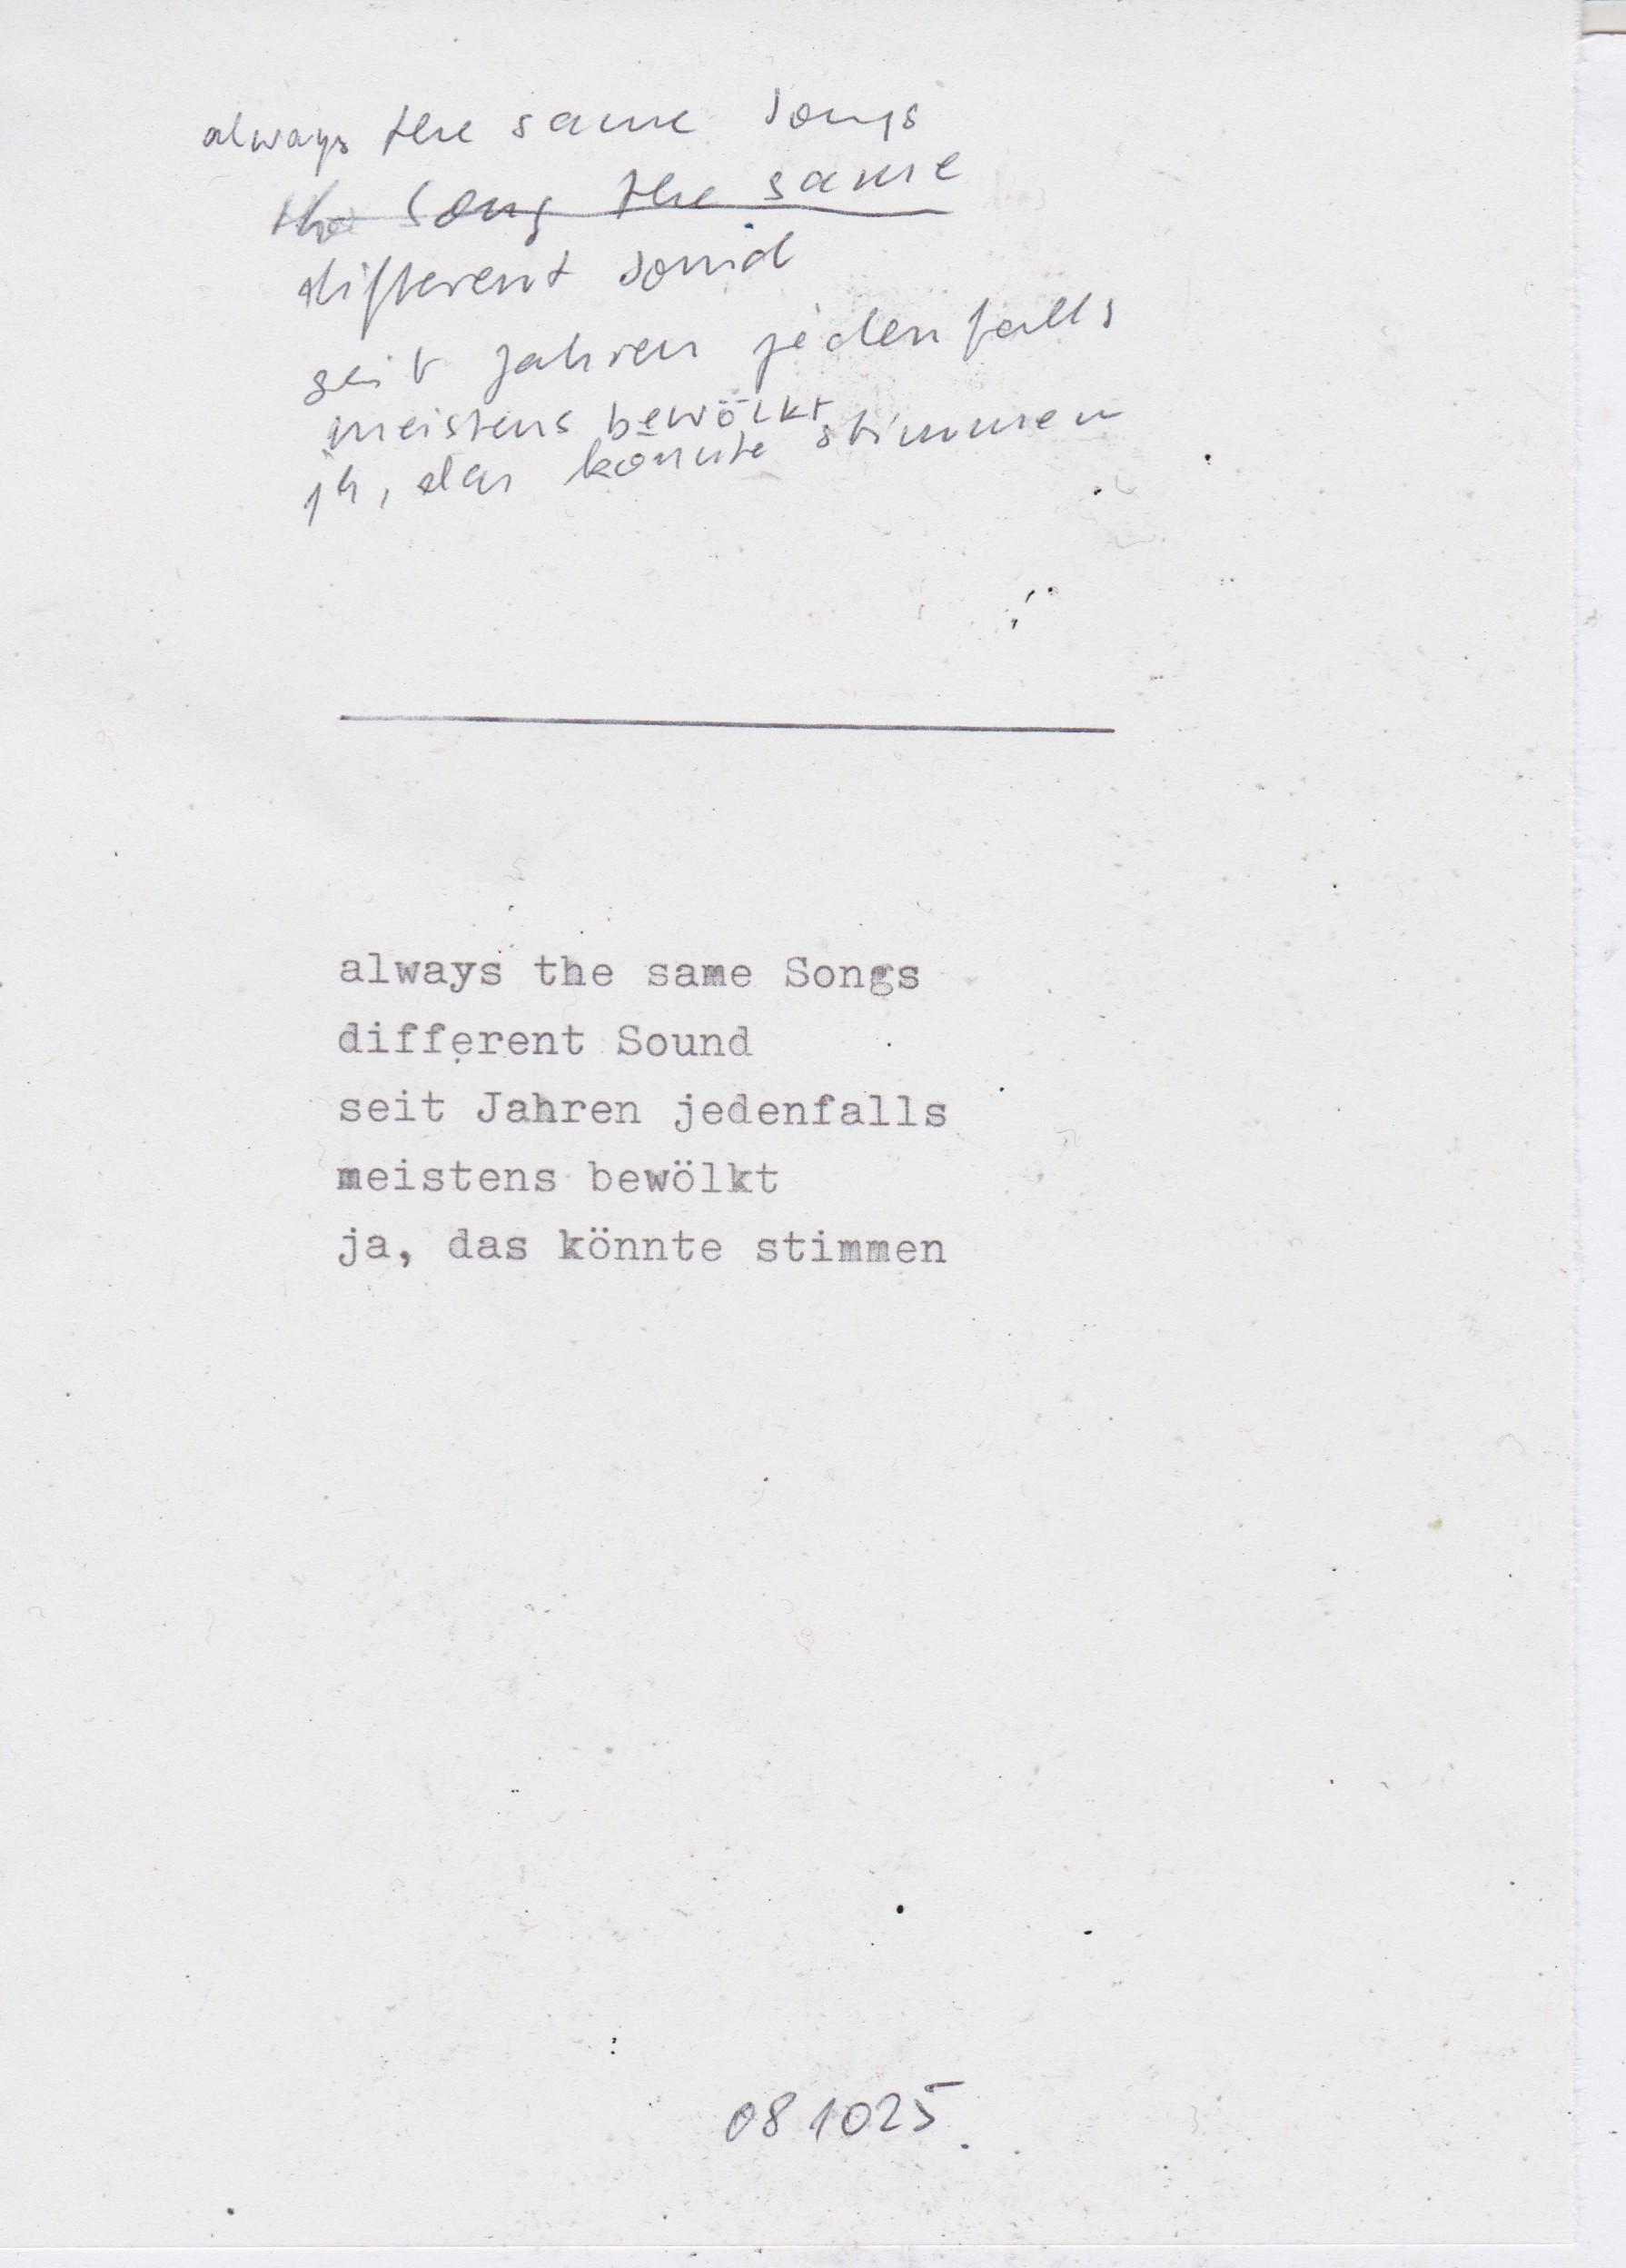 always the same Songs
the Song the same
different Sound
seit Jahren jedenfalls
meistens bewölkt
ja, das könnte stimmen
always the same Songs
different Sound
seit Jahren jedenfalls
meistens bewölkt
ja, das könnte stimmen
081025